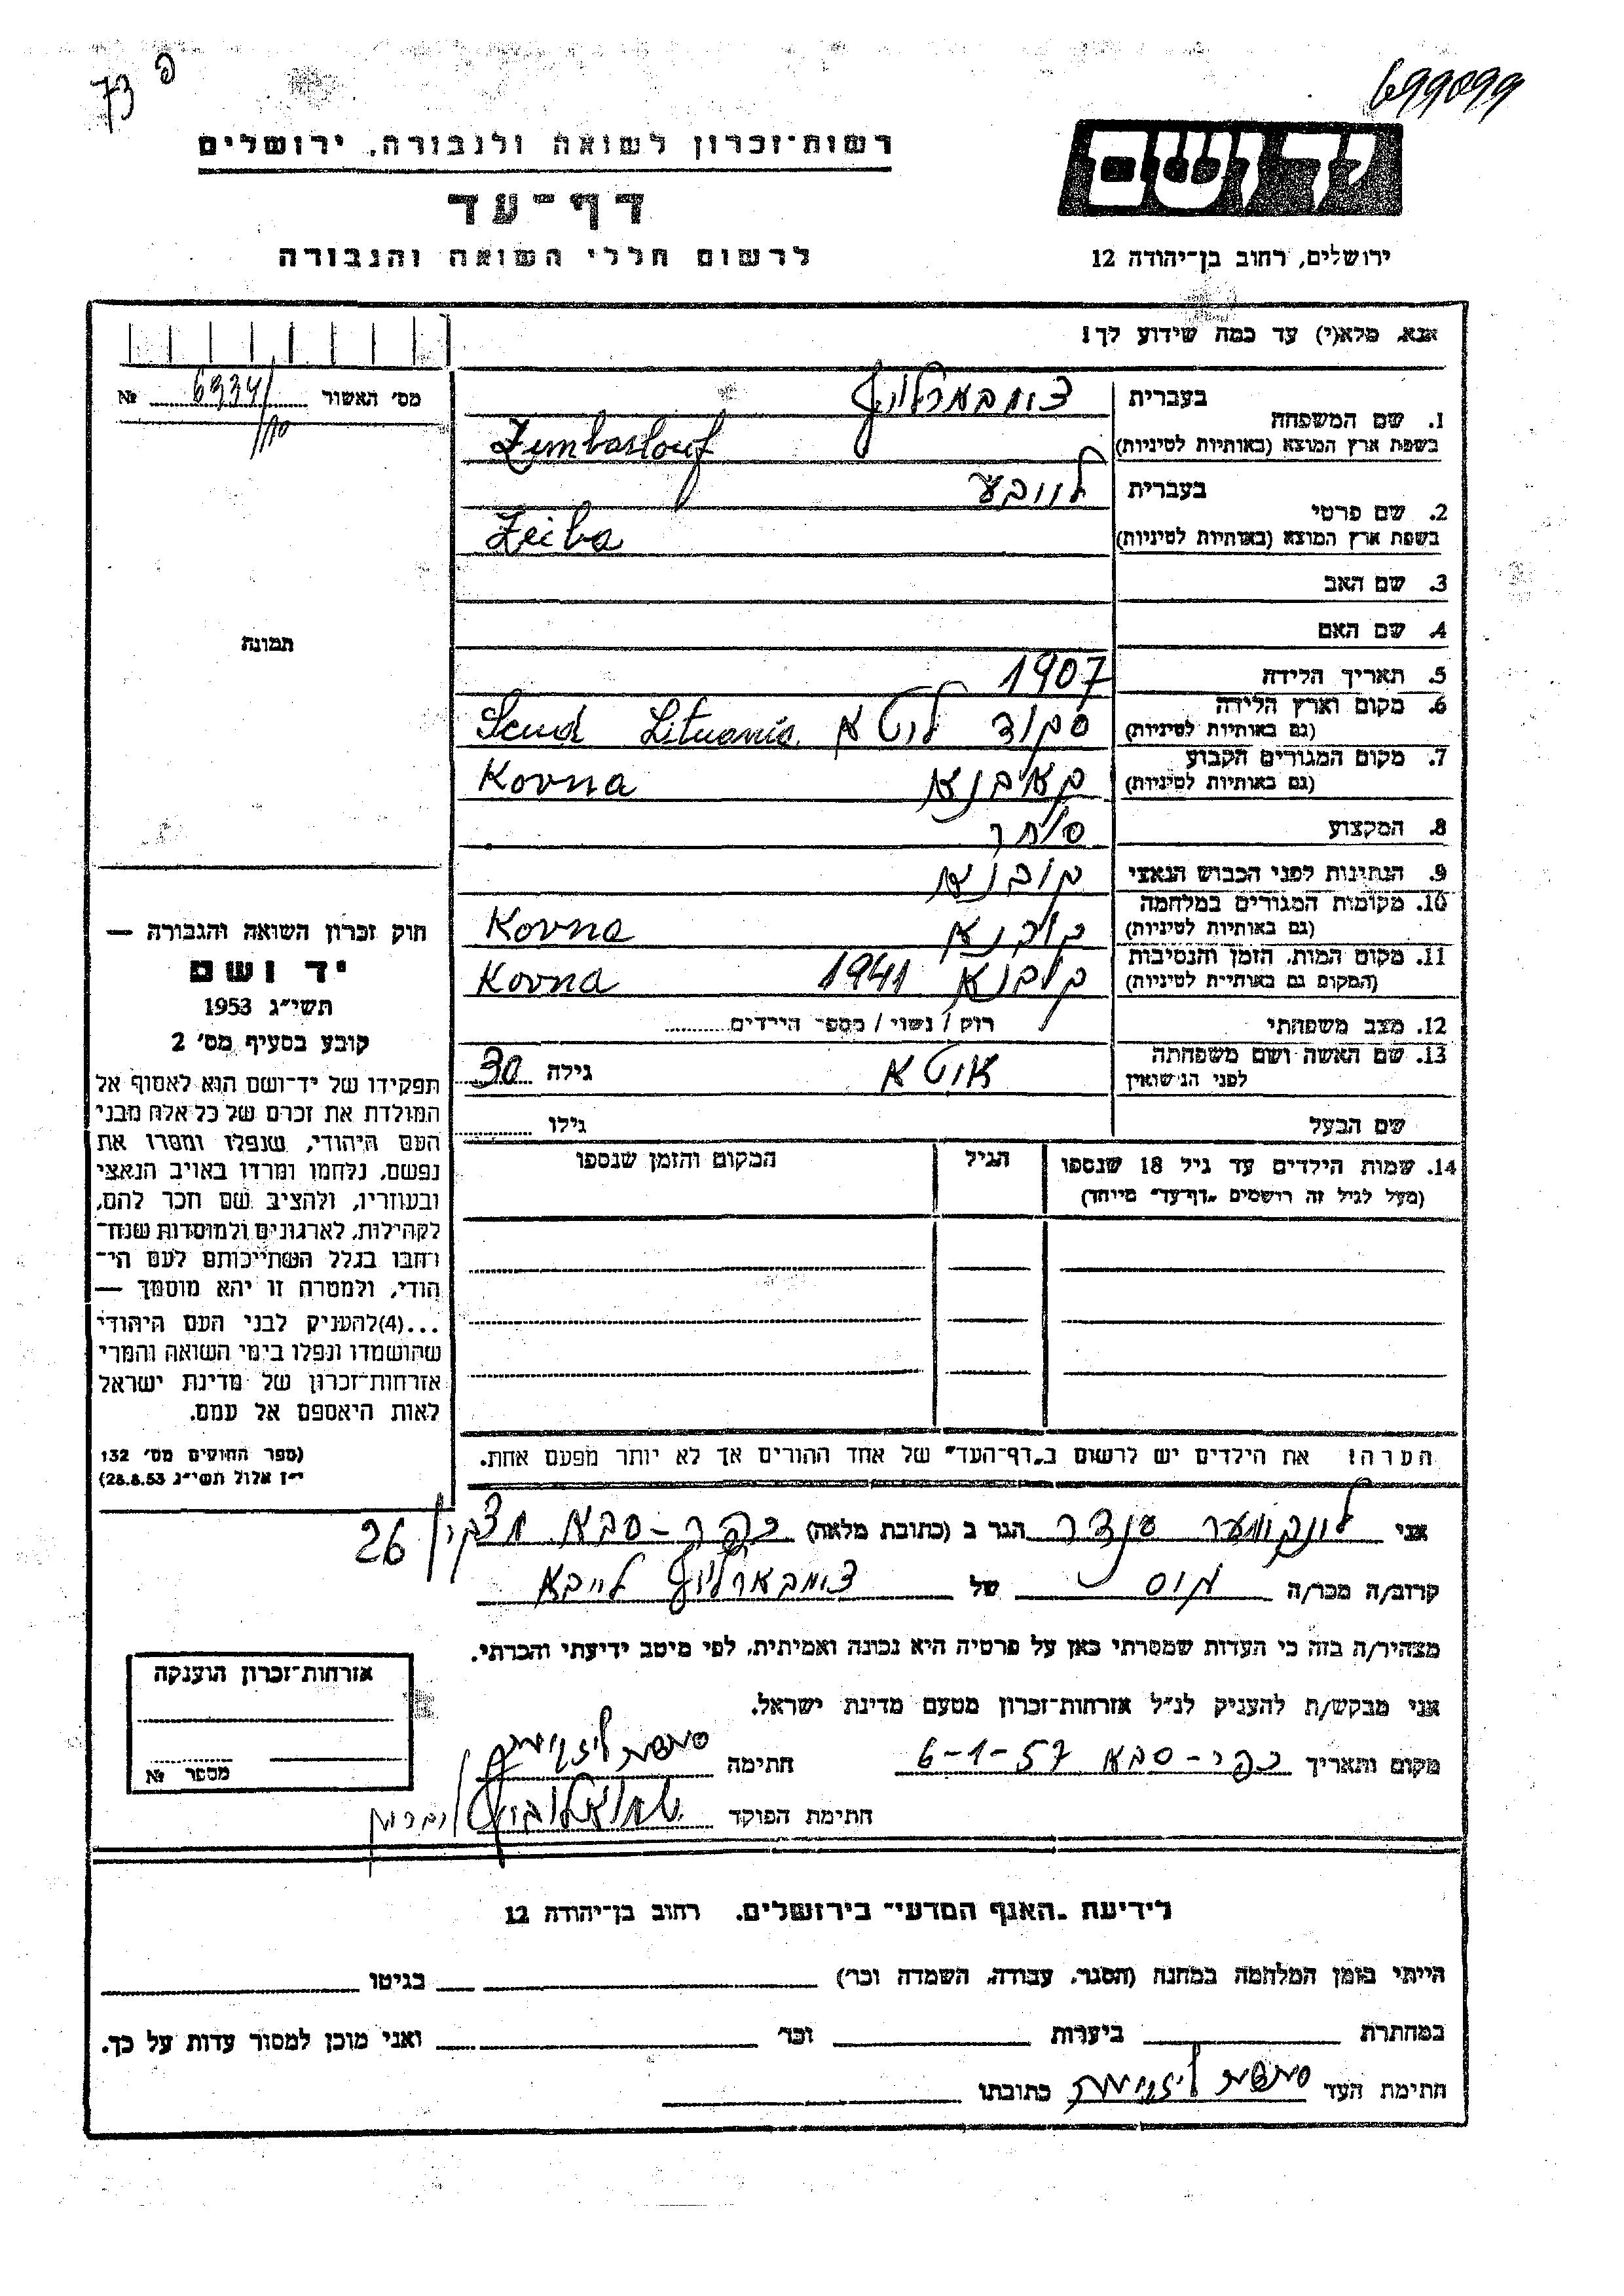 73 פ
699099
רשות־זכרון לשואה ולגבורה, ירושלים
דף־עד
לרשום חללי השואה והגבורה
יד ושם
ירושלים, רחוב בן־יהודה 12
אנא, מלא(י) עד כמה שידוע לך!
מס' האשור 6334/ №
1. שם המשפחה
בעברית צומבארליוף
בשפת ארץ המוצא (באותיות לטיניות) Zumbarlouf
2. שם פרטי
בעברית לייבע
בשפת ארץ המוצא (באותיות לטיניות) Leiba
3. שם האב
4. שם האם
5. תאריך הלידה 1907
6. מקום וארץ הלידה
(גם באותיות לטיניות) סקוד ליטא Scud Lituania
7. מקום המגורים הקבוע
(גם באותיות לטיניות) קאבנא Kovna
8. המקצוע סוחר
9. הנתינות לפני הכבוש הנאצי קובנא
10. מקומות המגורים במלחמה
(גם באותיות לטיניות) קובנא Kovna
11. מקום המות, הזמן והנסיבות
(המקום גם באותיות לטיניות) קובנא 1941 Kovna
12. מצב משפחתי רוק / נשוי / מספר הילדים
13. שם האשה ושם משפחתה
לפני הנישואין גילה 30
שם הבעל גילו
14. שמות הילדים עד גיל 18 שנספו
(מעל לגיל זה רושמים „דף־עד" מיוחד)
הגיל
המקום והזמן שנספו
הערה: את הילדים יש לרשום ב„דף־העד" של אחד ההורים אך לא יותר מפעם אחת.
תמונה
חוק זכרון השואה והגבורה —
יד ושם
תשי"ג 1953
קובע בסעיף מס' 2
תפקידו של יד־ושם הוא לאסוף אל
המולדת את זכרם של כל אלה מבני
העם היהודי, שנפלו ומסרו את
נפשם, נלחמו ומרדו באויב הנאצי
ובעוזריו, ולהציב שם וזכר להם,
לקהילות, לארגונים ולמוסדות שנח־
רבו בגלל השתייכותם לעם הי־
הודי, ולמטרה זו יהא מוסמך —
...(4)להעניק לבני העם היהודי
שהושמדו ונפלו בימי השואה והמרי
אזרחות־זכרון של מדינת ישראל
לאות היאספם אל עמם.
(ספר החוקים מס' 132
י"ז אלול תשי"ג 28.8.53)
אני סנדר הגר ב (כתובת מלאה) כפר-סבא 26
קרוב/ה מכר/ה גיס של צומבארליוף לייבא
מצהיר/ה בזה כי העדות שמסרתי כאן על פרטיה היא נכונה ואמיתית, לפי מיטב ידיעתי והכרתי.
אני מבקש/ת להעניק לנ"ל אזרחות־זכרון מטעם מדינת ישראל.
מקום ותאריך כפר-סבא 6-1-57 חתימה
חתימת הפוקד
אזרחות־זכרון הוענקה
מספר №
לידיעת „האגף המדעי" בירושלים, רחוב בן־יהודה 12
הייתי בזמן המלחמה במחנה (הסגר, עבודה, השמדה וכו') בגיטו
במחתרת ביערות וכו' ואני מוכן למסור עדות על כך.
חתימת העד כתובתו